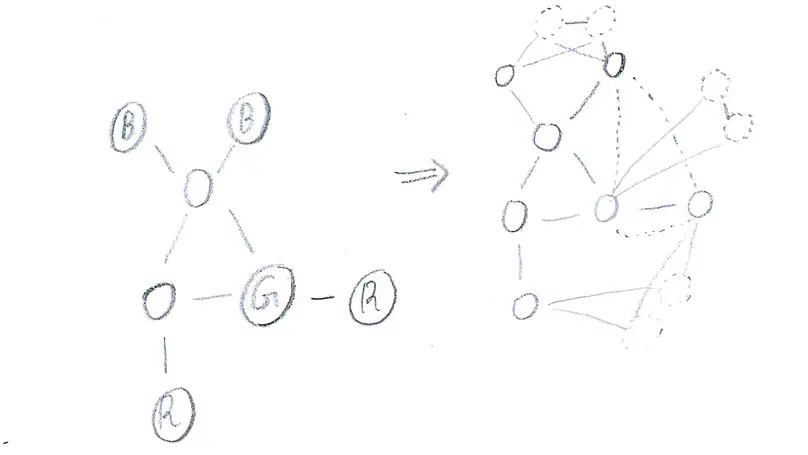 B B
G R
R